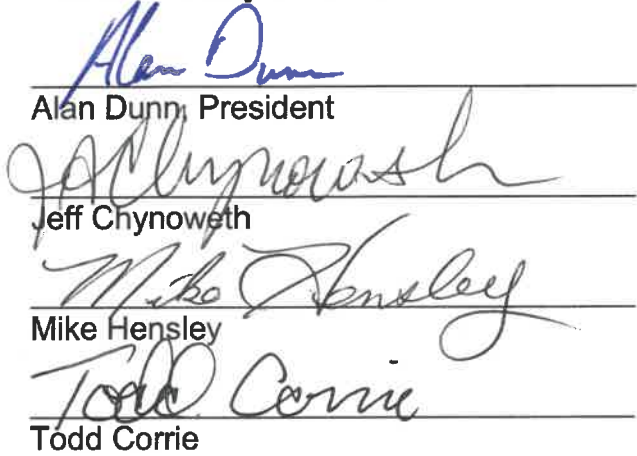 Alan Dunn
Alan Dunn, President
Jeff Chynoweth
Jeff Chynoweth
Mike Hensley
Mike Hensley
Todd Corrie
Todd Corrie